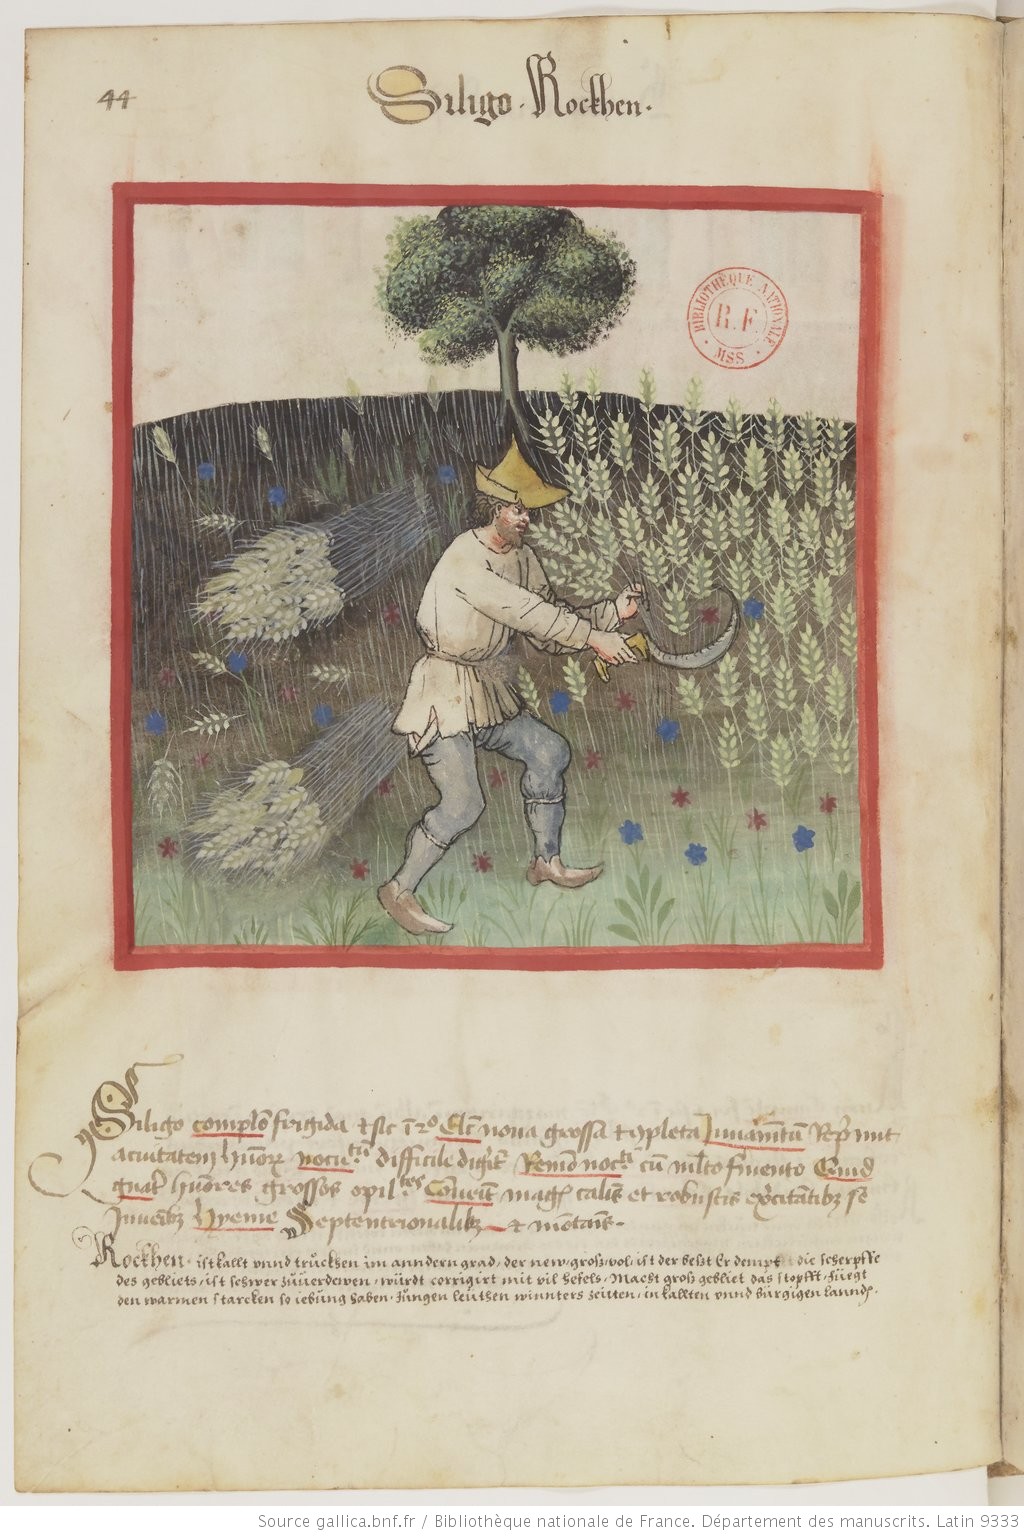 44
Siligo · Rockhen ·
BIBLIOTHÈQUE NATIONALE
R.F.
MSS
Siligo complō frigida et sic ī 2º Elcī nova grossa et īpleta Juvamtū Repmit
acuitatem hūorꝝ nocumtū difficile digit Remō nocti cū mlto fmento Quid
gnat hūores grossos opil Convenit mag cal et robustis exercitatibꝫ se
Juvēibꝫ Hyeme Septentrionalibꝫ et mōtais.
Rockhen · ist kallt vnnd trücken im anndern grad / der new / gros / vol / ist der besst Er dempt die scherpffe
des gebliets / ist schwer züuerdewen / würdt corrigirt mit vil hefels / Macht gros gebliet das stopfft / Füegt
den warmen starcken so iebüng haben · Jüngen leuthen winnters zeitten / in kallten vnnd bürgigen lannd.
Source gallica.bnf.fr / Bibliothèque nationale de France. Département des manuscrits. Latin 9333